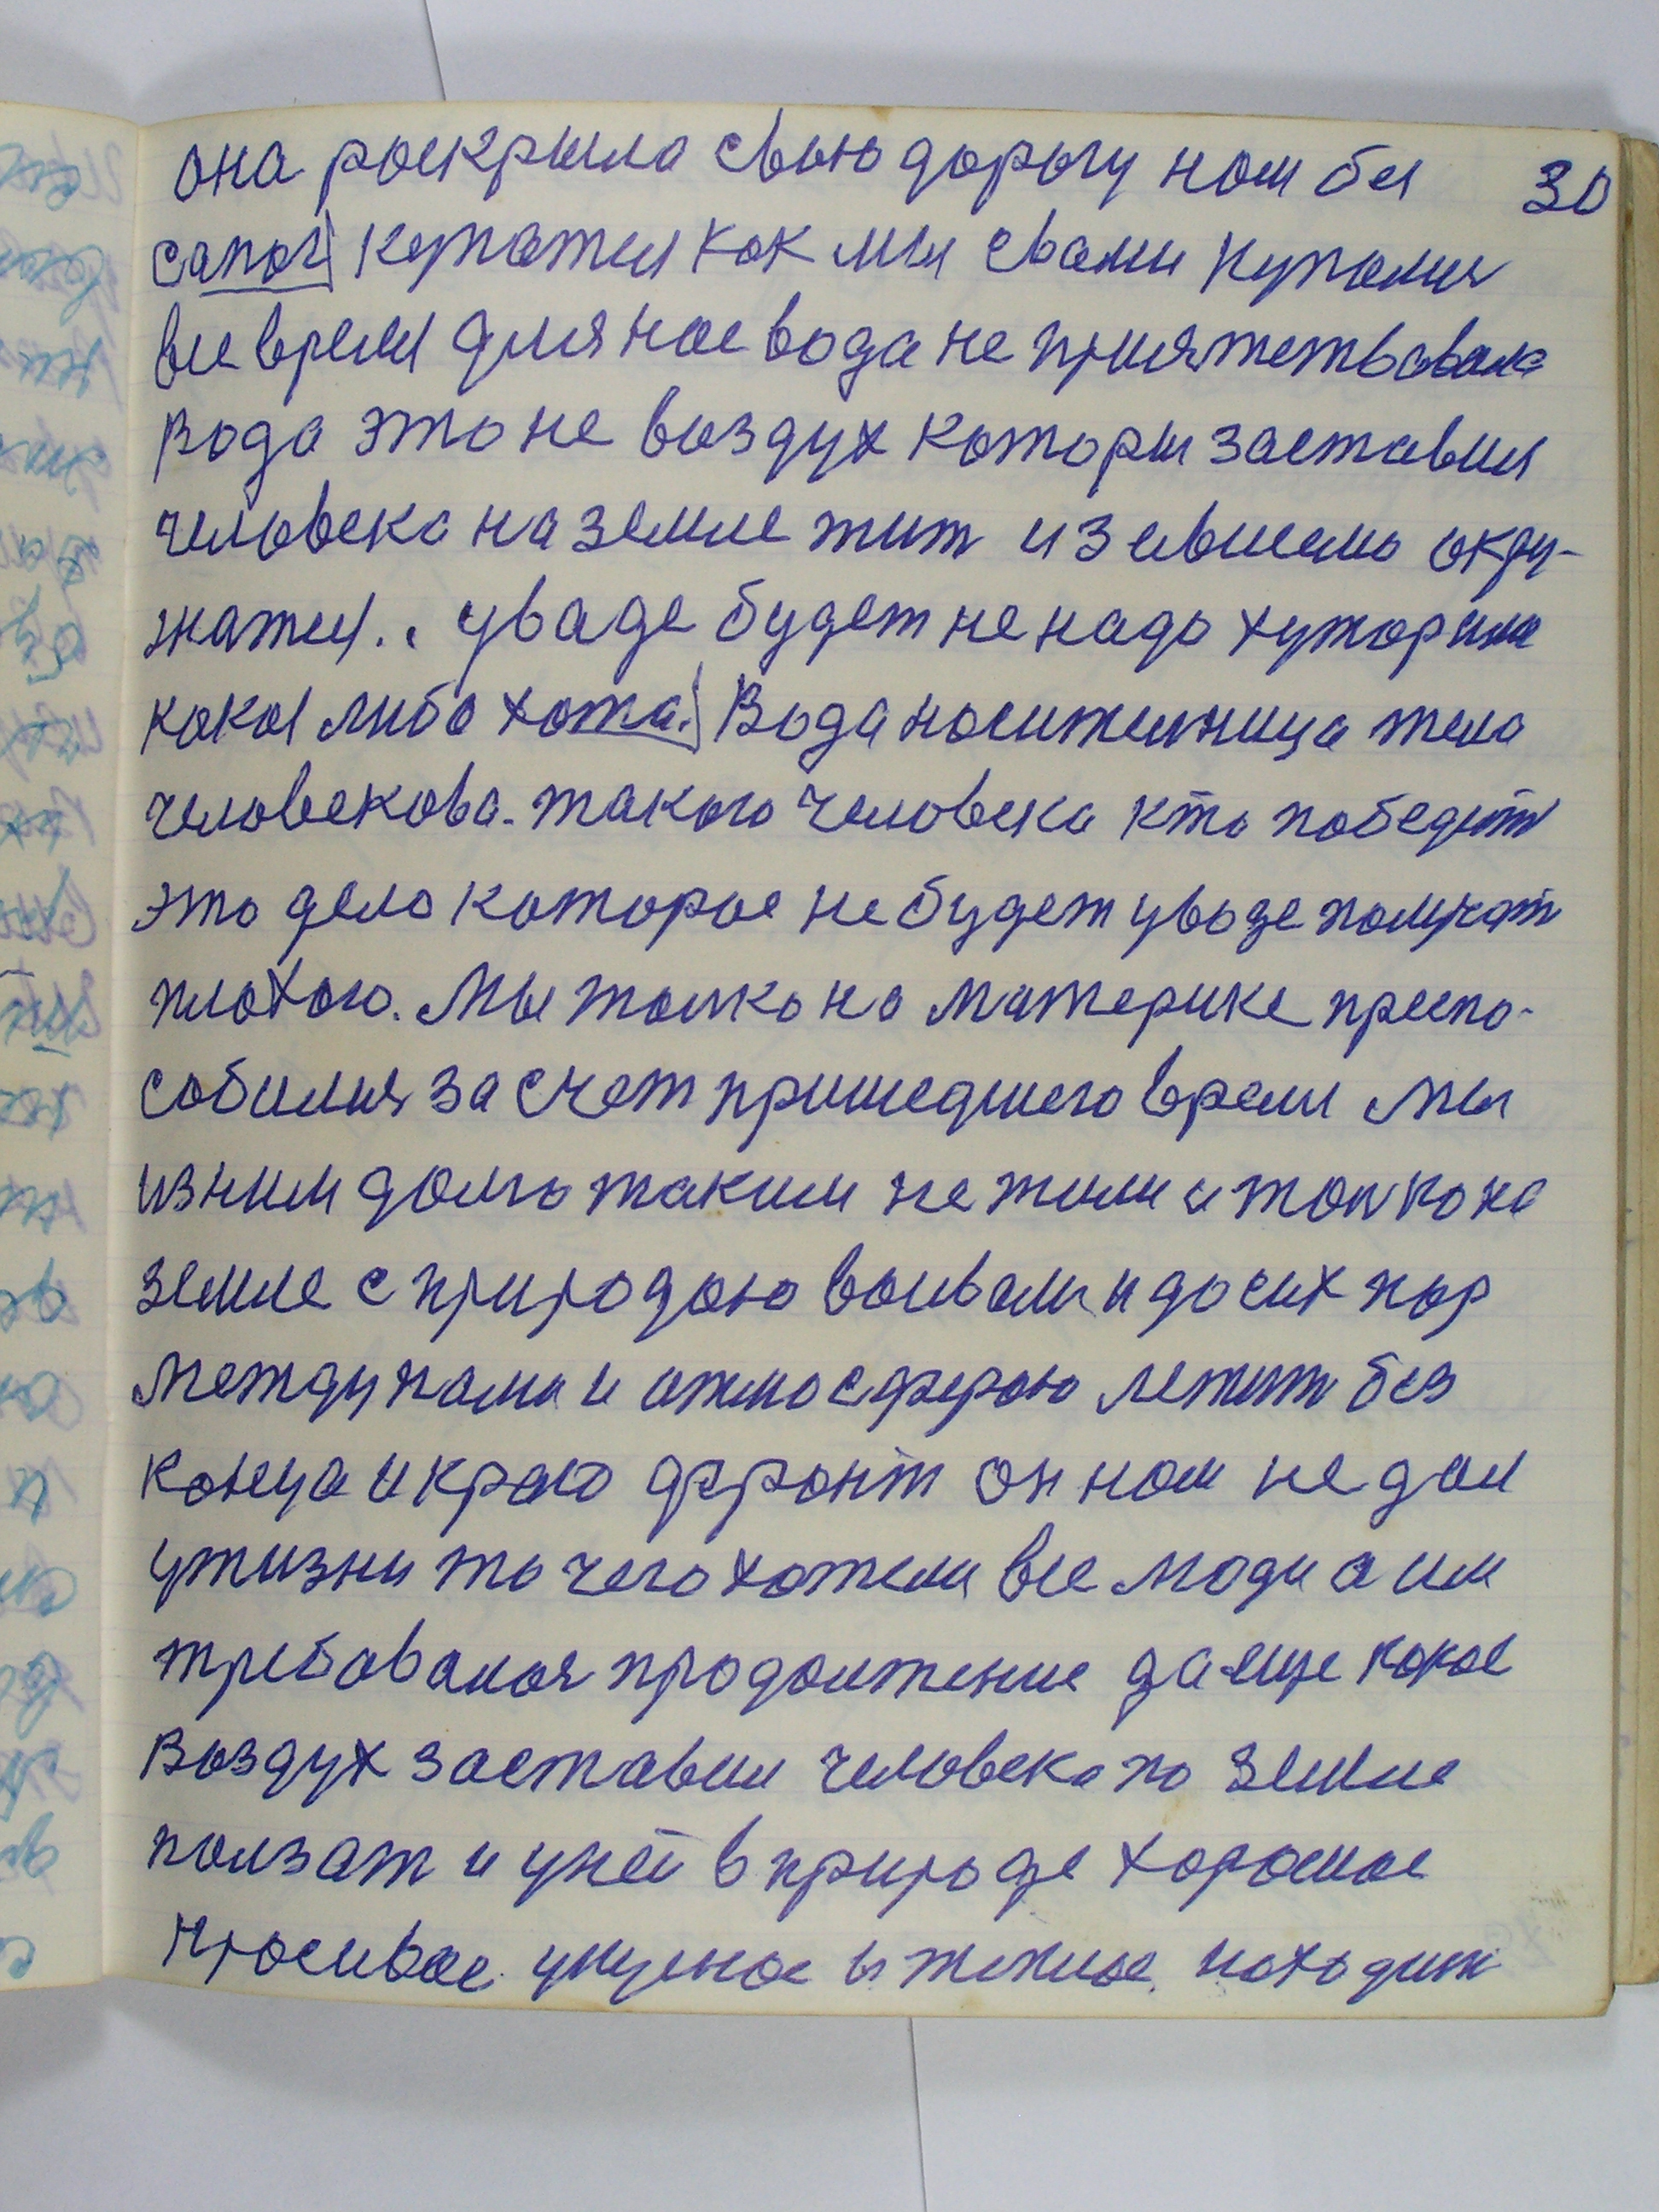 она роскрыла свою дорогу ном бы 30
сапог купатся как мы свами купалися
все время для нас вода не приятствовала
вода это не воздух который заставил
человека на земле жит и з
жатся.. уваде будет не надо хуторили
какая либо хата. Вода носительница тела
человекова. такого человека кто победит
это дело которое не будет уводе получат
плохого. Мы толко на материке приспо-
собилия за счет пришедшего время мы
изним долго таким не жили и толко на
земле с природою воивали и до сих пор
между нами и атмосферою лежит без
конца и краю фронт он нам не дал
ужизни то чего хотели все люди а им
требовалоя продолжение да еще какое
Воздух заставил человека по земле
ползат и унеё в природе хорошое
красивое уценое и тёплое находит